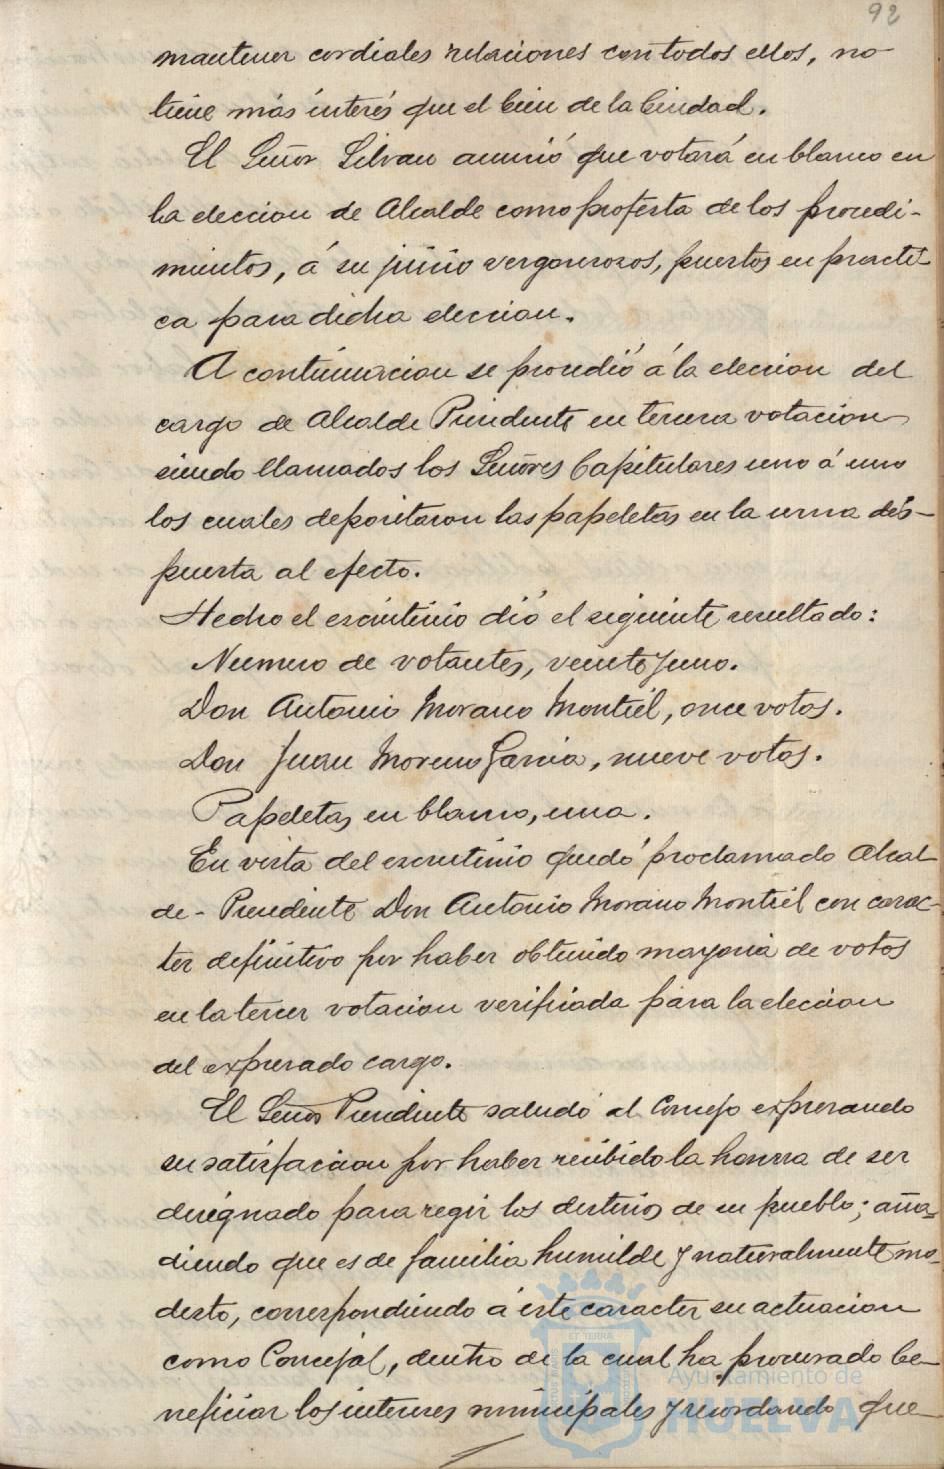 92
mantener cordiales relaciones con todos ellos, no
tiene más interés que el bien de la Ciudad.
El Señor Silvan anunció que votará en blanco en
la eleccion de Alcalde como protesta de los procedi-
mientos, á su juicio vergonzosos, puestos en practi-
ca para dicha eleccion.
A continuacion se procedió á la eleccion del
cargo de Alcalde Presidente en tercera votacion
siendo llamados los Señores Capitulares uno á uno
los cuales depositaron las papeletas en la urna dis-
puesta al efecto.
Hecho el escrutinio dió el siguiente resultado:
Numero de votantes, veinte y uno.
Don Antonio Morano Montiel, once votos.
Don Juan Moreno Garcia, nueve votos.
Papeletas en blanco, una.
En vista del escrutinio quedó proclamado Alcal-
de-Presidente Don Antonio Morano Montiel con carac-
ter definitivo por haber obtenido mayoria de votos
en la tercer votacion verificada para la eleccion
del expresado cargo.
El Señor Presidente saludó al Concejo expresando
su satisfaccion por haber recibido la honra de ser
designado para regir los destinos de su pueblo; aña-
diendo que es de familia humilde y naturalmente mo-
desto, correspondiendo á este caracter su actuacion
como Concejal, dentro de la cual ha procurado be-
neficiar los intereses municipales y recordando que
ET TERRA
Ayuntamiento de
HUELVA